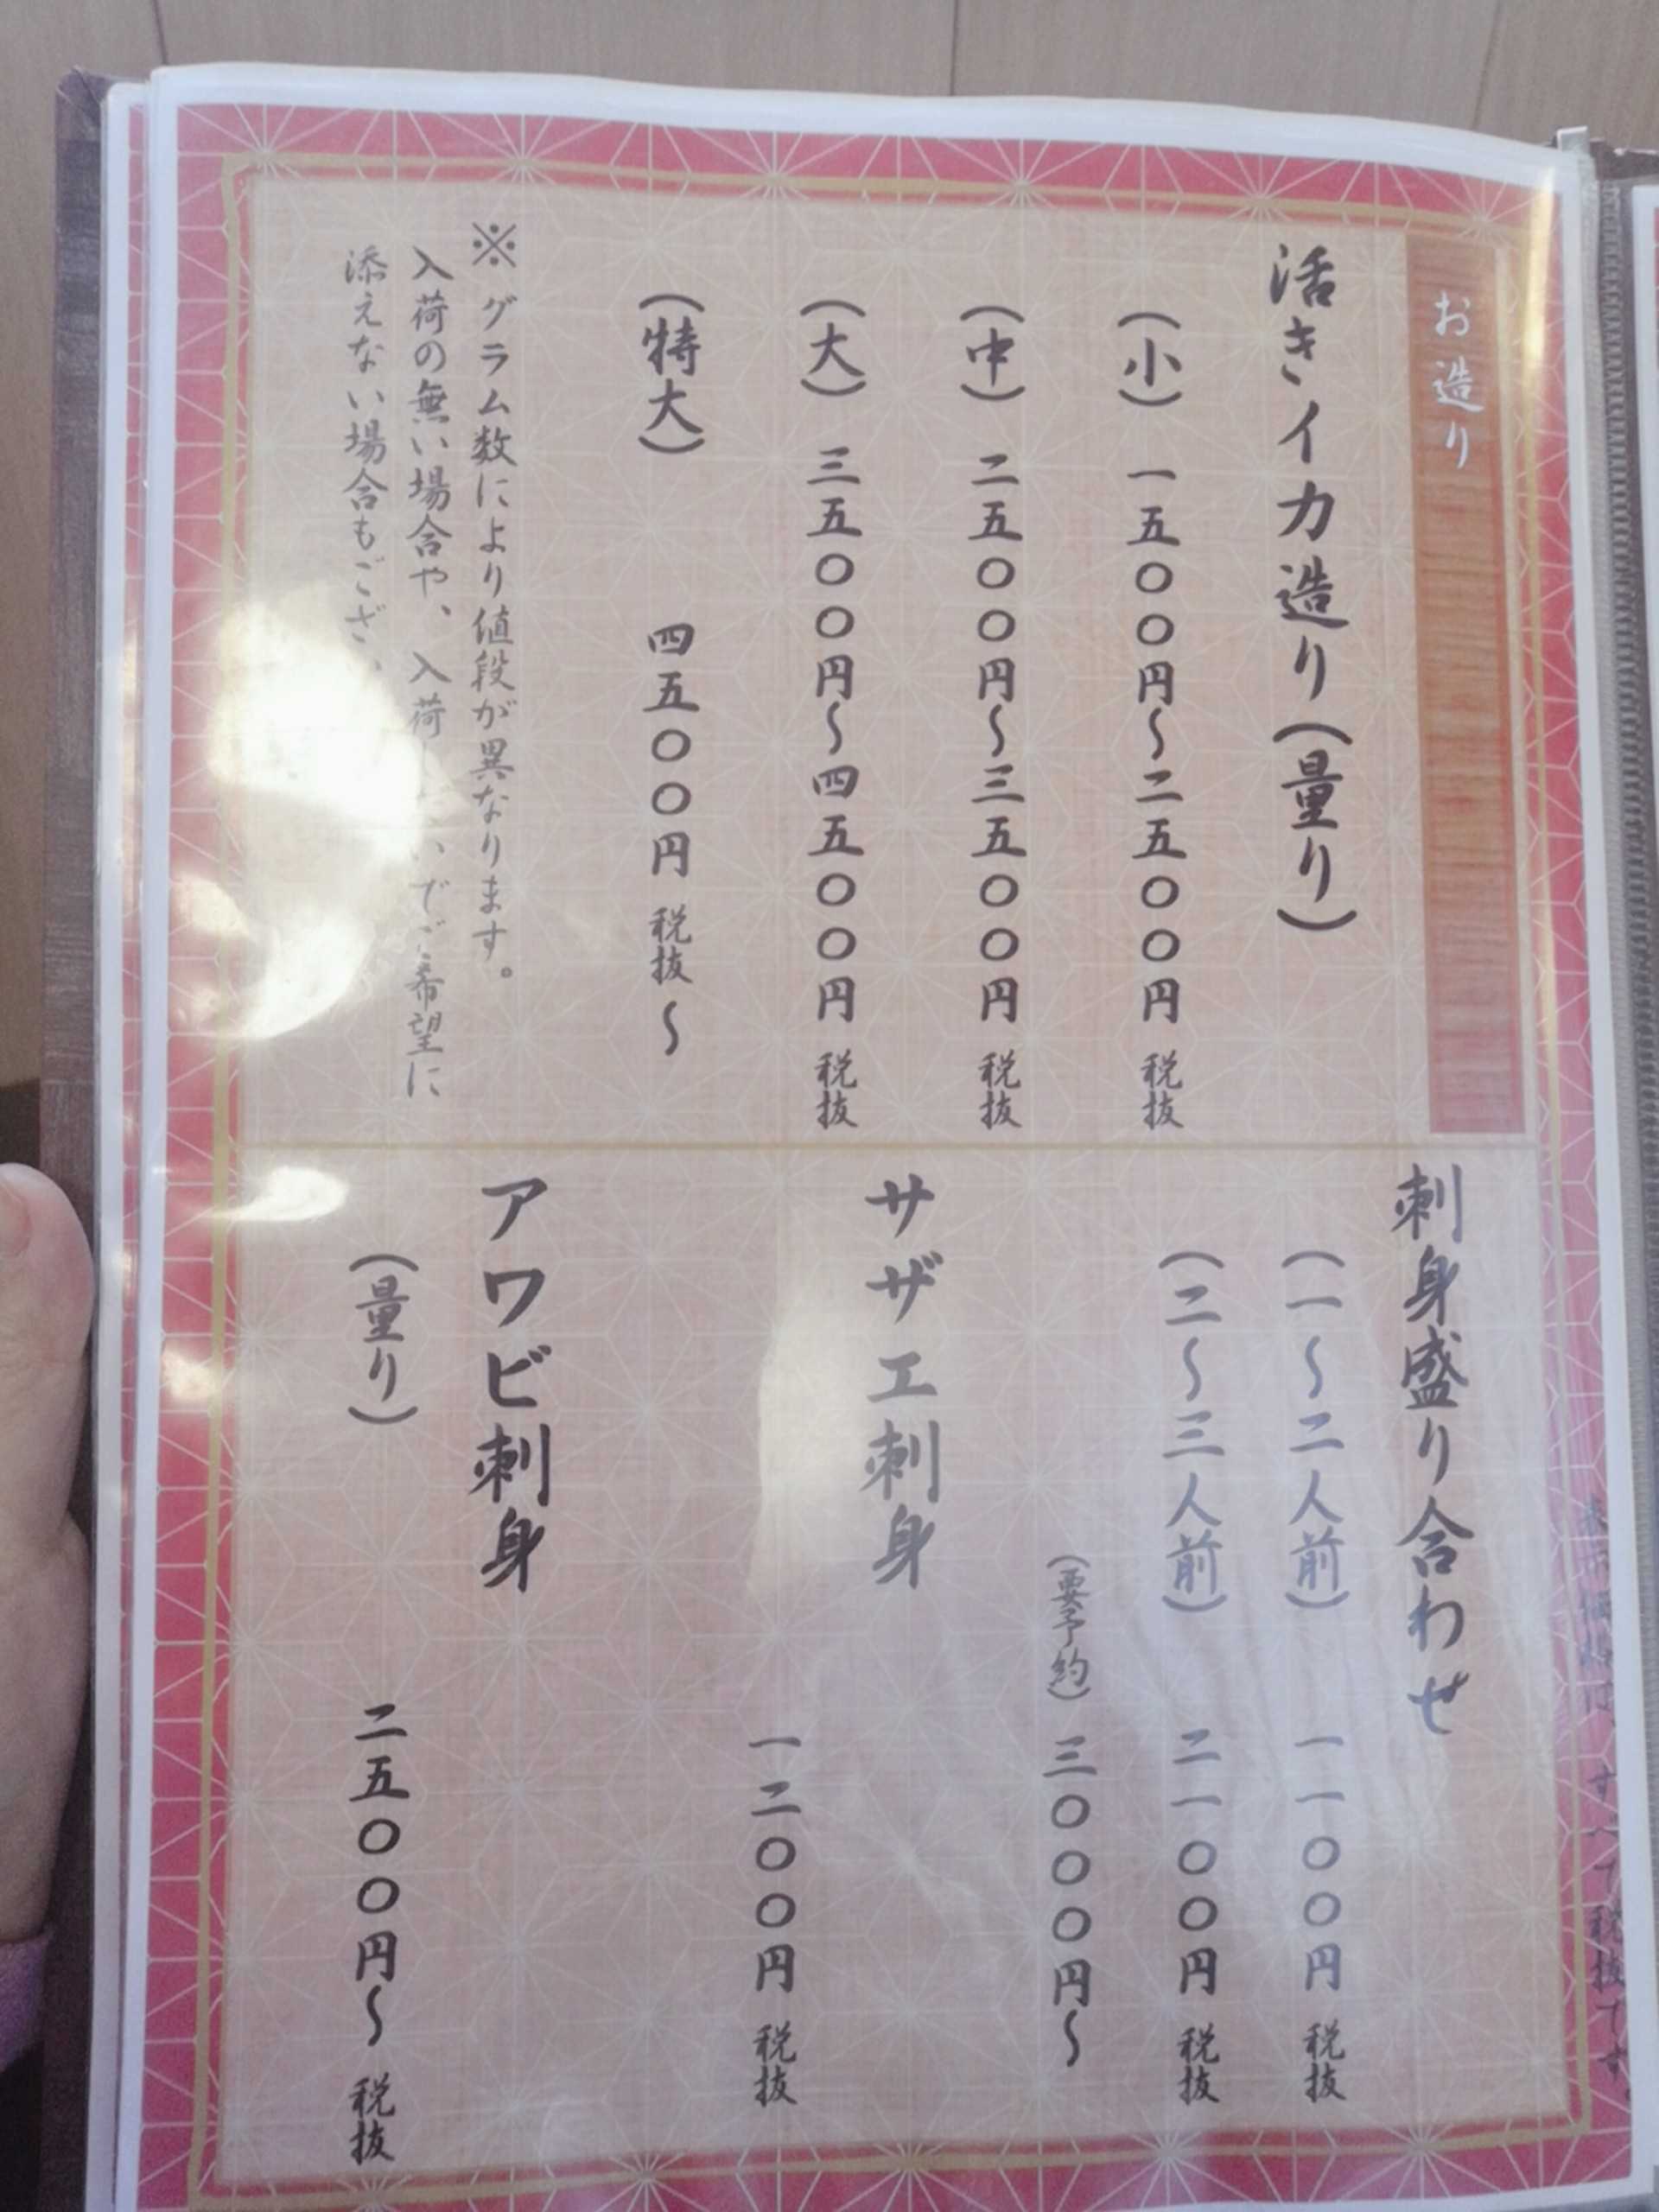 お造り
活きイカ造り（量り）
（小）　一五〇〇円〜二五〇〇円　税抜
（中）　二五〇〇円〜三五〇〇円　税抜
（大）　三五〇〇円〜四五〇〇円　税抜
（特大）　四五〇〇円　税抜〜
※グラム数により値段が異なります。
入荷の無い場合や、入荷 でご希望に
添えない場合もござい
刺身盛り合わせ
（一〜二人前）　一一〇〇円　税抜
（二〜三人前）　二一〇〇円　税抜
（要予約）　三〇〇〇円〜
サザエ刺身
一二〇〇円　税抜
アワビ刺身
（量り）　二五〇〇円〜　税抜
すべて税抜です。